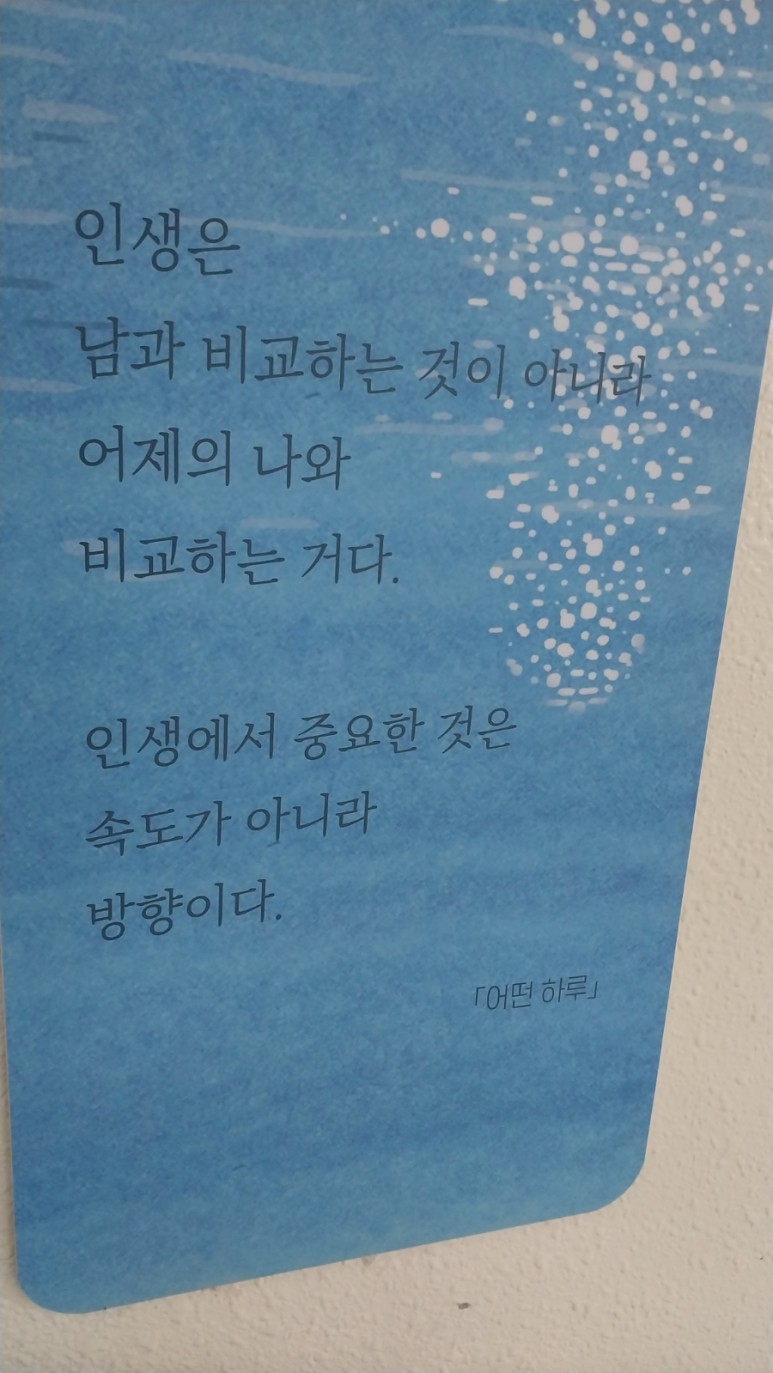 인생은
남과 비교하는 것이 아니라
어제의 나와
비교하는 거다.
인생에서 중요한 것은
속도가 아니라
방향이다.
「어떤 하루」